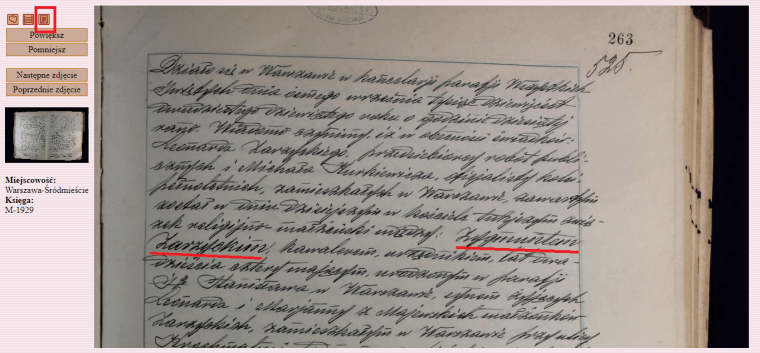 Powiększ
Pomniejsz
Następne zdjęcie
Poprzednie zdjęcie
Miejscowość:
Warszawa-Śródmieście
Księga:
M-1929
263
525.
Działo się w Warszawie w kancelarji parafji Wszystkich
Świętych dnia ósmego września tysiąc dziewięćset
dwudziestego dziewiątego roku o godzinie dziesiątej
rano. Wiadomo czynimy, iż w obecności świadków:
Leonarda Zarzyckiego, przedsiębiorcy robót publi-
cznych i Michała Kurkiewicza, oficjalisty kolei
pełnoletnich, zamieszkałych w Warszawie, zawartym
został w dniu dzisiejszym w kościele tutejszym zwią-
zek religijno-małżeński między: Zygmuntem
Zarzyckim, kawalerem, urzędnikiem, lat dwa-
dzieścia cztery mającym, urodzonym w parafji
Śgo Stanisława w Warszawie, synem żyjących
Leonarda i Marjanny z Majewskich małżonków
Zarzyckich, zamieszkałym w Warszawie przy ulicy